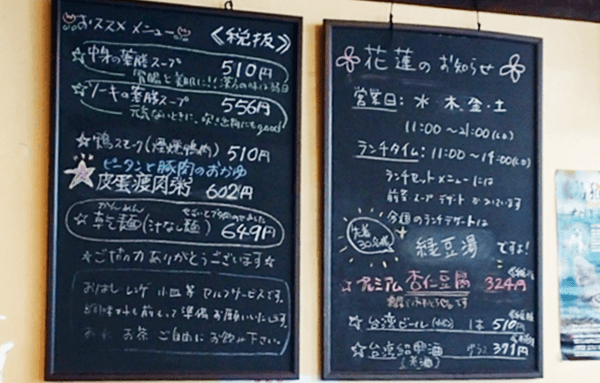 おススメ メニュー
《税抜》
☆中身の薬膳スープ 510円
☆ソーキの薬膳スープ 556円
元気ないときに、
good
☆鴨スモーク(煙燻鴨肉) 510円
ピータンと豚肉のおかゆ
☆皮蛋瘦肉粥 602円
かんめん
☆乾麺(汁なし麺) 649円
☆ご協力ありがとうございます☆
おはし レンゲ 小皿等 セルフサービスです。
準備お願いいたします。
お茶 ご自由にお飲み下さい。
花蓮のお知らせ
営業日: 水・木・金・土
11:00〜21:00(L.O)
ランチタイム: 11:00〜14:00(L.O)
ランチセットメニューには
前菜 スープ デザート がついています
今週のランチデザートは
先着30名様
緑豆湯 ですよ!
☆プレミアム 杏仁豆腐 324円
☆台湾ビール 1本 510円
☆台湾紹興酒 グラス 371円